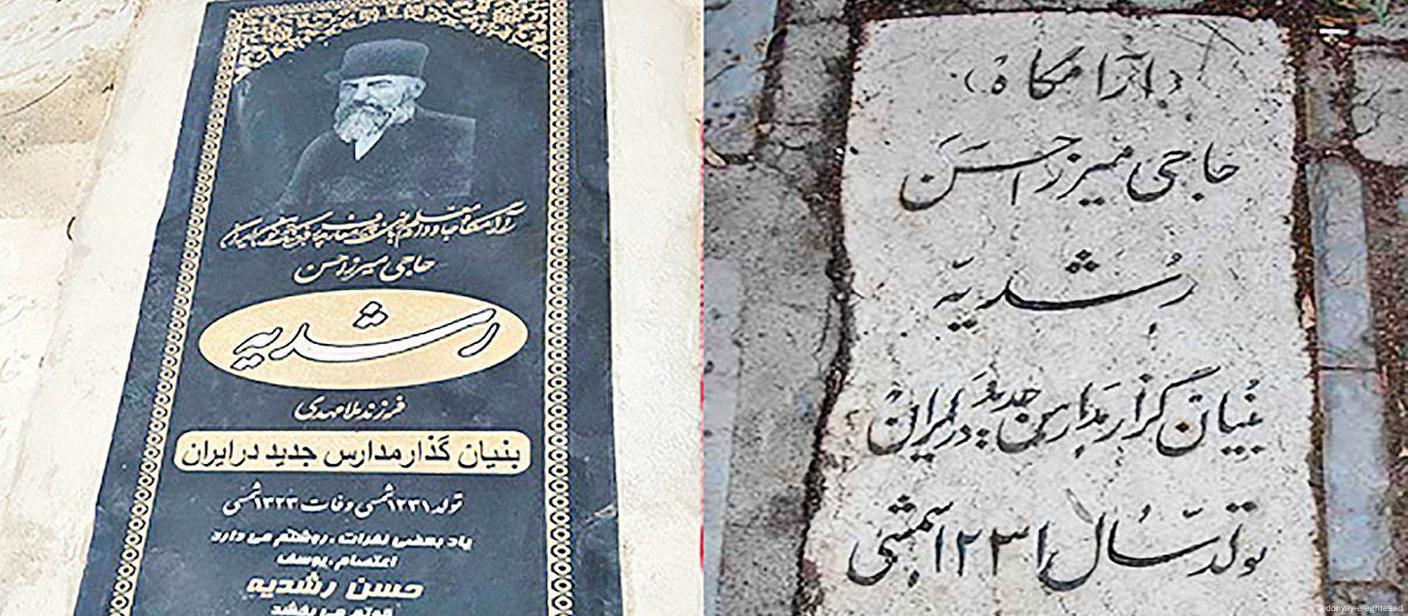 حاجی میرزا حسن
رشدیه
فرزند ملامهدی
بنیان گذار مدارس جدید در ایران
تولد ۱۲۳۱ شمسی وفات ۱۳۲۳ شمسی
یاد بعضی نفرات، روشنم می دارد
اعتصام، یوسف
حسن رشدیه
قوتم می بخشد
(آرامگاه)
حاجی میرزا حسن
رُشدیّه
بنیان گزار مدارس جدید در ایران
تولد سال ۱۲۳۱ شمسی
donyay-e-eghtesad